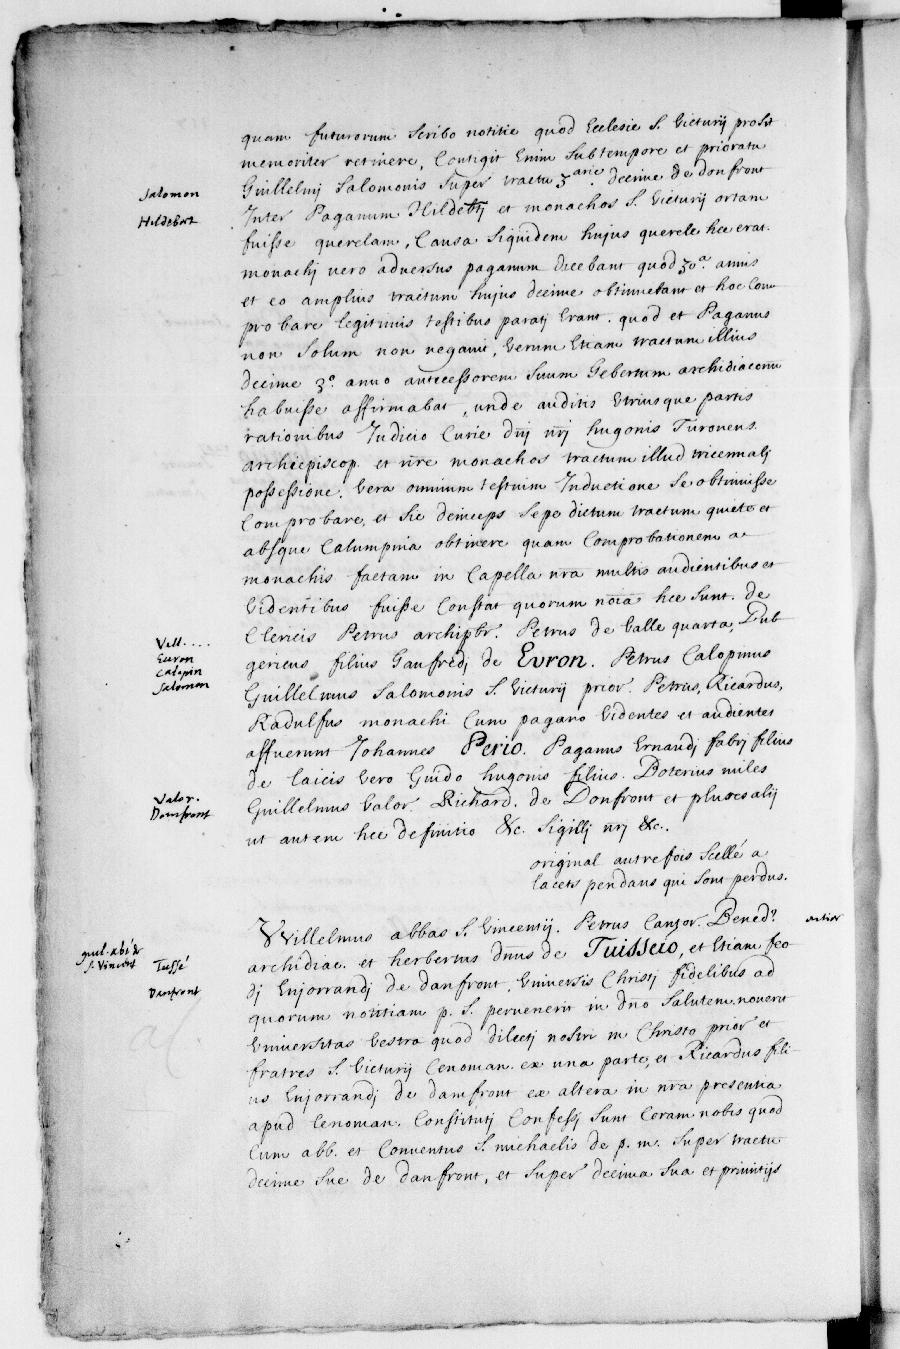 quam futurorum scribo notitie quod Ecclesie S. Victurij prosit
memoriter retinere, Contigit Enim Sub tempore et prioratu
Guillelmj Salomonis super tractu 3arie. decime de donfront
Salomon
Inter Paganum Hildebtj et monachos S. Victurij ortam
Hildebert
fuisse querelam, Causa siquidem hujus querele hec erat.
monachj vero adversus paganum dicebant quod 30a. annis
et eo amplius tractum hujus decime obtinuerant et hoc Com
probare legitimis testibus paratj Erant. quod et Paganus
non solum non negavit, Verum Etiam tractum illius
decime 3o. anno antecessorem suum Gebertum archidiaconu
habuisse affirmabat, unde auditis Utriusque partis
rationibus Judicio Curie dnj nrj hugonis Turonens.
archiepiscop. et nre monachos tractum illud tricennalj
possessione. Vera omnium testium Inductione se obtinuisse
Comprobare, et sic deinceps sepe dictum tractum quiete et
absque Calumpnia obtinere quam Comprobationem a
monachis factam in Capella nra multis audientibus et
Videntibus fuisse Constat quorum noia hec sunt. de
Clericis Petrus archipbr. Petrus de Valle quarta, Dub
Vall....
gericus, filius Gaufredj de Evron. Petrus Calopinus
Evron
Calopin
Guillelmus Salomonis S. Victurij prior. Petrus, Ricardus,
Salomon
Radulfus monachi Cum pagano Videntes et audientes
affuerunt Johannes Perio. Paganus Ernaudj fabrj filius
de laicis vero Guido hugonis filius. Boterius miles
Guillelmus Valor. Richard. de Donfront et plures alij
Valor.
Domfront
ut autem hec definitio &c. Sigillj nrj &c.
original autrefois scellé a
lacets pendans qui sont perdus.
Willelmus abbas S. Vincentij. Petrus Cantor. Bened.
archidiac. et herbertus dnus de Tuisseio, et Etiam feo
guil. abé d
S. Vincent
Tussé
dj Enjorrandj de danfront. Universis Christj fidelibus ad
Danfront
quorum notitiam p. S. pervenerit in dno salutem. noverit
Universitas Vestra quod dilectj nostri in Christo prior et
fratres S. Victurij Cenoman. ex una parte, et Ricardus fili-
us Enjorrandj de danfront ex altera in nra presentia
apud Cenoman. Constitutj Confessj sunt Coram nobis quod
Cum abb. et Conventus S. michaelis de p. m. super tractu
decime sue de danfront, et super decima sua et primitijs